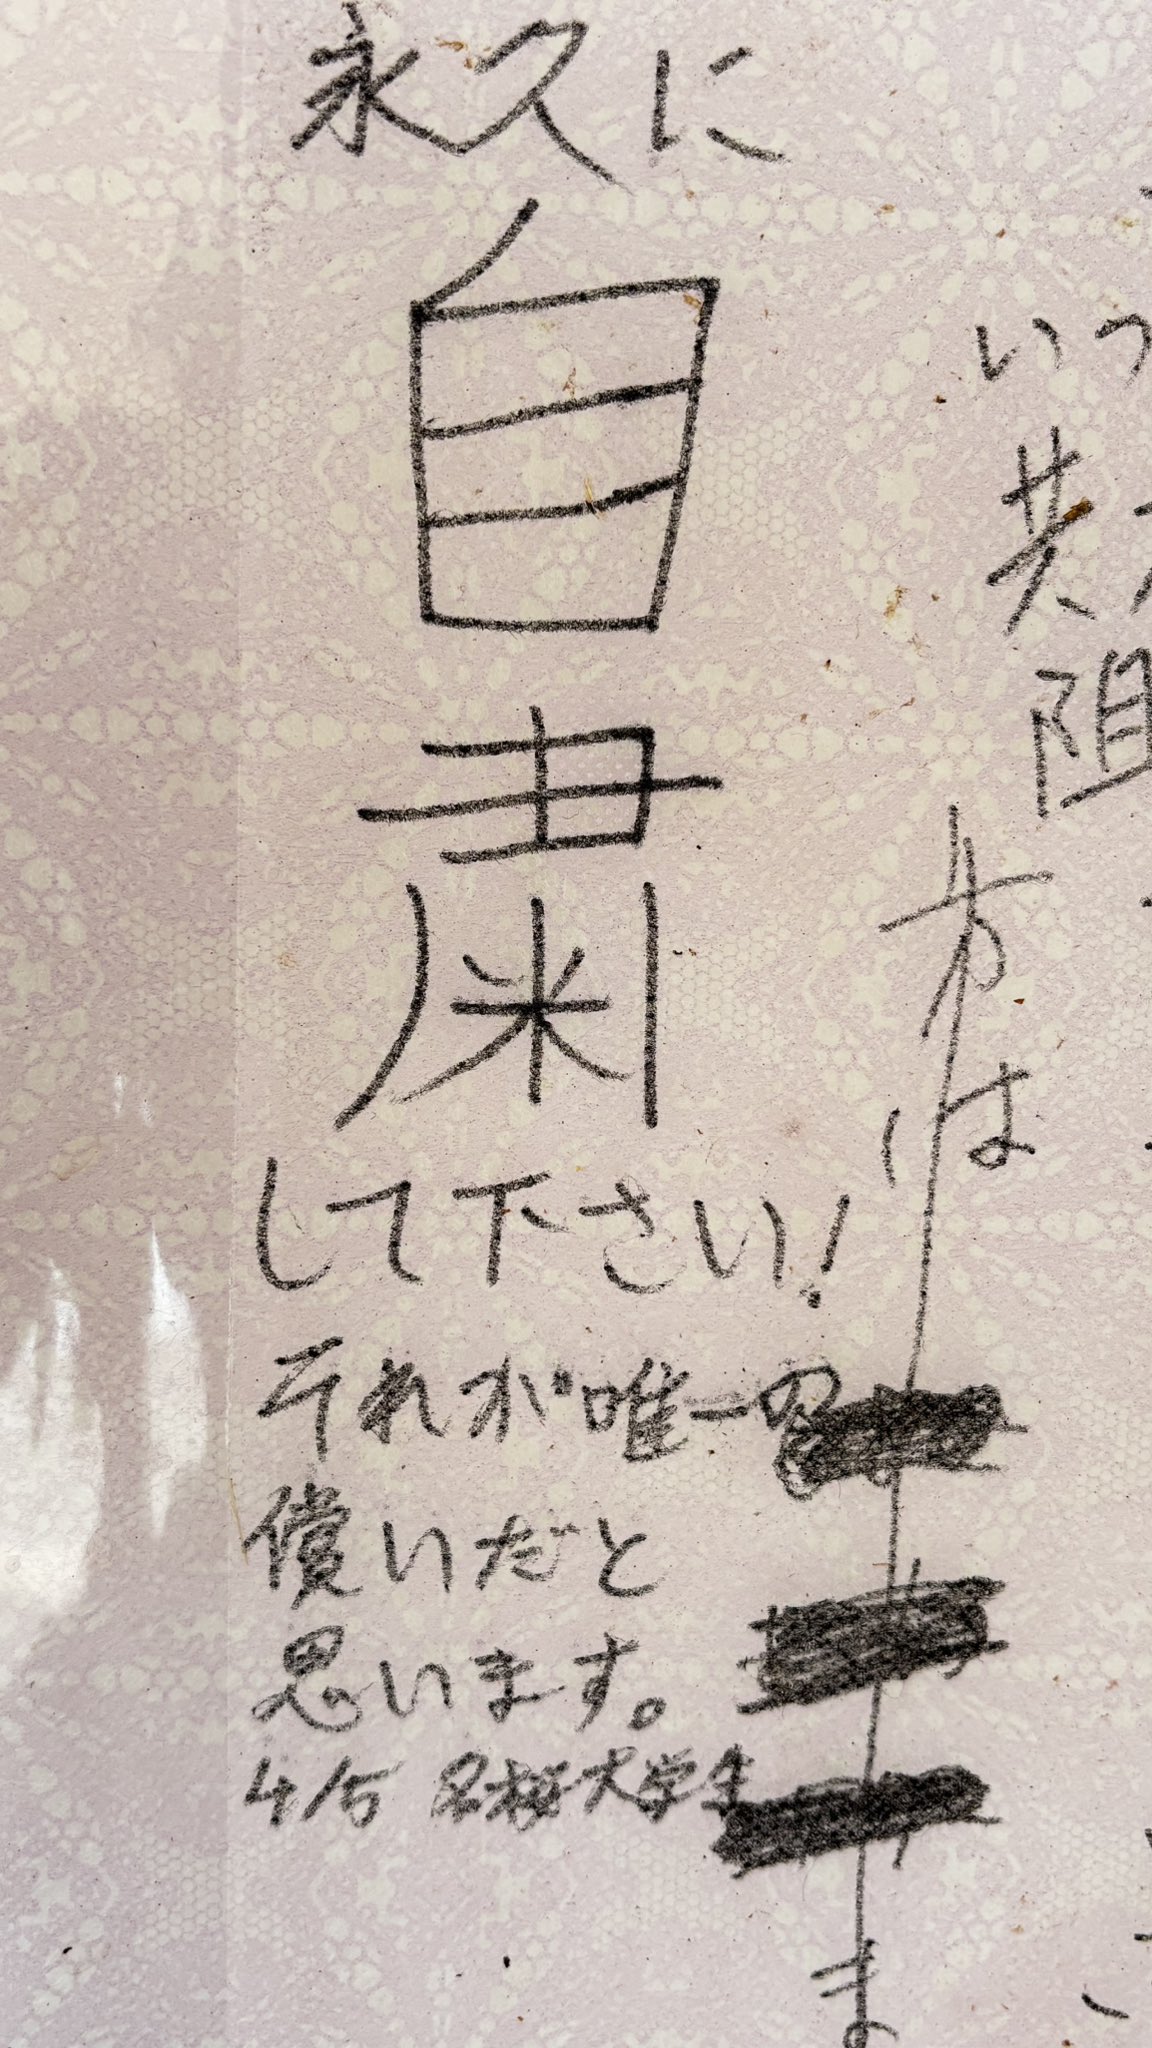 永久に
自
粛
して下さい!
それが唯一
償いだと
思います。
4/5 名桜大学生
いつ
共
阻
方
は
ま